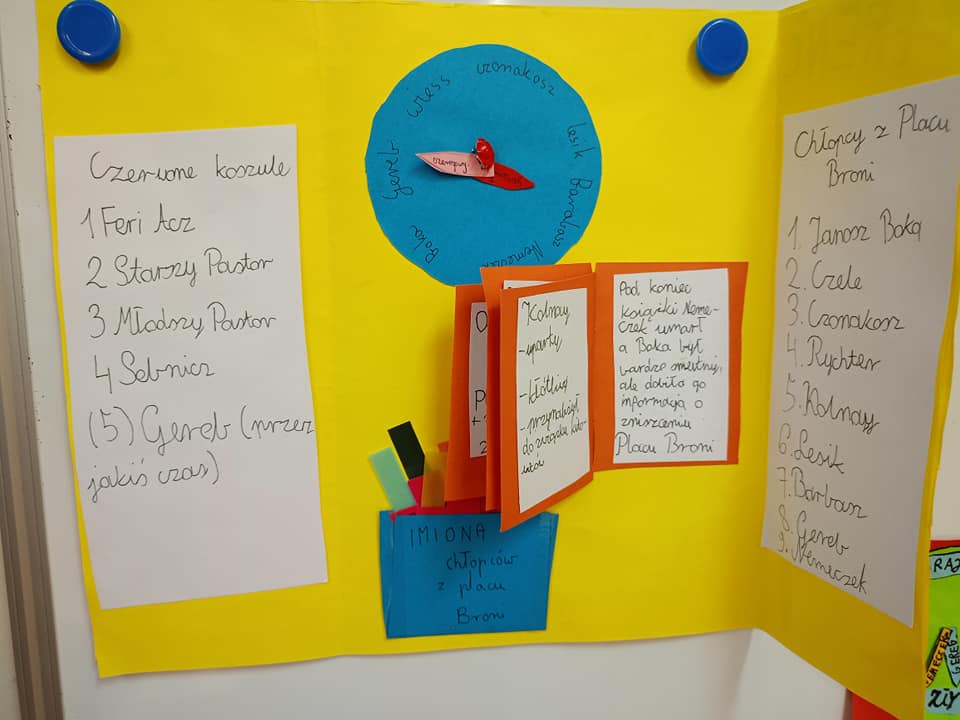 Czerwone koszule
1 Feri Acz
2 Starszy Pastor
3 Młodszy Pastor
4 Sebnicz
(5) Gereb (przez
jakiś czas)
Boka
Gereb
Wiess
Czonakosz
Lesik
Barabasz
Nemeczek
czerwony
Kolnay
- uparty
- kłótliwy
- przynależał
do związku kito-
wców
Pod koniec
książki Neme-
czek umarł
a Boka był
bardzo smutny,
ale dobiła go
informacja o
zniszczeniu
Placu Broni
IMIONA
chłopców
z placu
Broni
Chłopcy z Placu
Broni
1. Janosz Boka
2. Czele
3. Czonakosz
4. Rychter
5. Kolnay
6. Lesik
7. Barbasz
8. Gereb
9. Nemeczek
GEREB